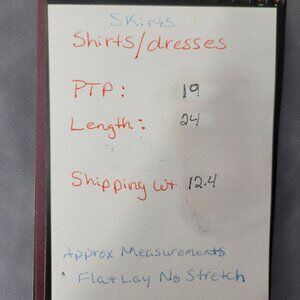 Skirts
Shirts/dresses
PTP: 19
Length: 24
Shipping wt 12.4
Approx Measurements
Flat Lay No Stretch